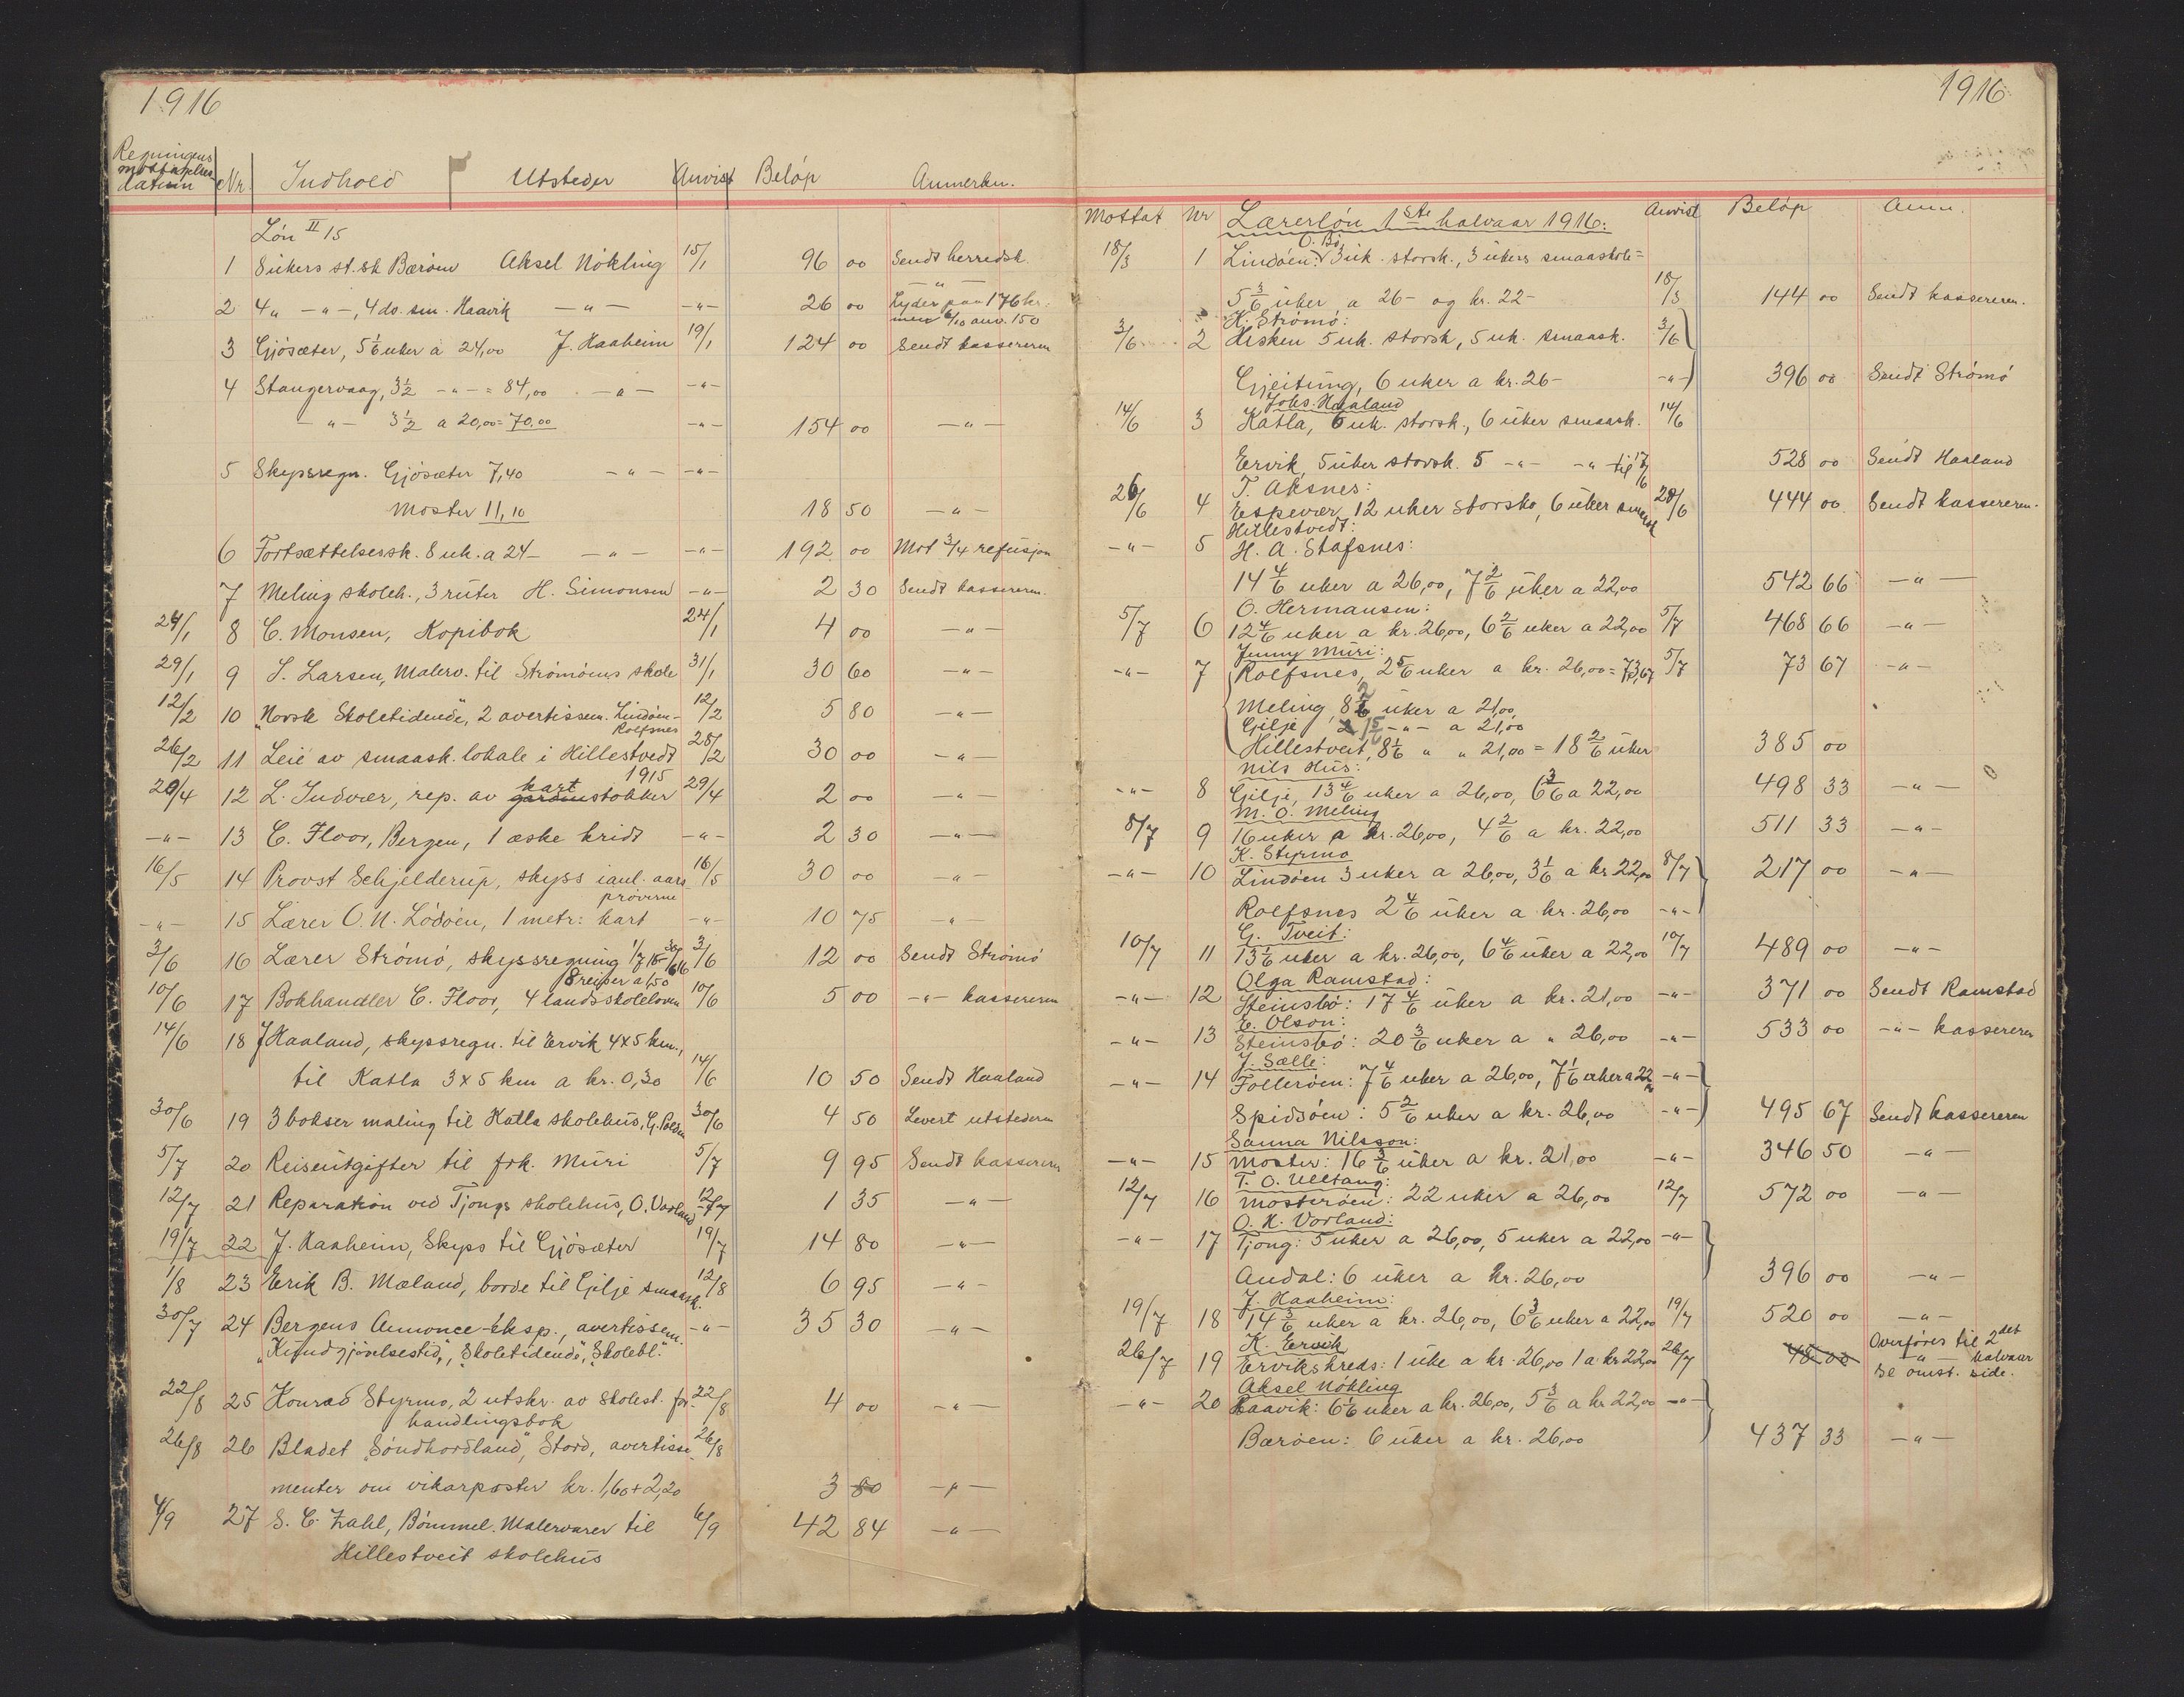 1916
Regningens mottagelsesdatum Nr. Indhold Utsteder Anvist Beløp Anmerkn.
Løn II 15
1 8 ukers st.sk Børøen Aksel Nökling 15/1 96 00 Sendt herredsk.
2 4 " -"-, 4 do. sm. Haavik -"- -"- 26 00 Lyder paa 176 kr.
men 6/10 anv. 150
3 Gjøsæter, 5 1/6 uker a 24,00 J. Haaheim 19/1 124 00 Sendt kassereren
4 Stangervaag, 3 1/2 -"- = 84,00 -"- -"-
-"- 3 1/2 a 20,00 = 70.00 -"- 154 00 -"-
5 Skyssregn. Gjøsæter 7,40 -"- -"-
Moster 11,10 18 50 -"-
6 Fortsættelsessk. 8 uk. a 24- -"- -"- 192 00 Mot 3/4 refusjon
7 Meling skoleh., 3 ruter H. Simonsen -"- 2 30 Sendt kassereren.
24/1 8 C. Monsen, Kopibok 24/1 4 00 -"-
29/1 9 S. Larsen, Malerv. til Strømøens skole 31/1 30 60 -"-
12/2 10 "Norsk Skoletidende", 2 avertissem. Lindøen- 12/2 5 80 -"-
Rolfsnes
26/2 11 Leie av smaask. lokale i Hillestvedt 28/2 30 00 -"-
1915
29/4 12 L. Indvær, rep. av kartstokker 29/4 2 00 -"-
-"- 13 C. Floor, Bergen, 1 æske kridt -"- 2 30 -"-
16/5 14 Provst Schjelderup, skyss i anl. aars- 16/5 30 00 -"-
prøverne
-"- 15 Lærer O. N. Lødøen, 1 metr: kart -"- 10 75 -"-
3/6 16 Lærer Strømø, skyssregning 1/7 15-30/6 16 3/6 12 00 Sendt Strømø
8 reiser a 1,50
10/6 17 Bokhandler C. Floor, 4 landsskoleloven 10/6 5 00 -"- kassereren
14/6 18 J Haaland, skyssregn. til Ervik 4x5 km.,
til Katla 3x5 km a kr. 0,30 14/6 10 50 Sendt Haaland
30/6 19 3 bokser maling til Katla skolehus, G. 30/6 4 50 Levert utstederen
5/7 20 Reiseutgifter til frk. Muri 5/7 9 95 Sendt kassereren
12/7 21 Reparation ved Tjongs skolehus, O. Vorland 12/7 1 35 -"-
19/7 22 J. Haaheim, Skyss til Gjøsæter 19/7 14 80 -"-
1/8 23 Erik B. Mæland, borde til Gilje smaask. 12/8 6 95 -"-
30/7 24 Bergens Annonce-Eksp., avertissem. -"- 35 30 -"-
"Kundgjørelsestid", "Skoletidende", "Skolebl."
22/8 25 Konrad Styrmo, 2 utskr. av skolest. for- 22/8 4 00 -"-
handlingsbok
26/8 26 Bladet "Søndhordland", Stord, avertisse- 26/8
menter om vikarposter kr. 1,60 + 2,20 3 80 -"-
4/9 27 S. C. Zahl, Bömmel. Malervarer til 6/9 42 84 -"-
Hillestveit skolehus
1916
Mottat Nr Lærerløn 1ste halvaar 1916: Anvist Beløp Anm.
O. Bø
18/3 1 Lindøen: 3 uk. storsk., 3 ukers smaaskole =
5 3/6 uker a 26- og kr. 22- 18/3 144 00 Sendt kassereren.
K. Strømø:
3/6 2 Hisken 5 uk. storsk, 5 uk. smaask. 3/6
Gjeitung, 6 uker a kr. 26- -"- 396 00 Sendt Strømø
Johs. Haaland
14/6 3 Katla, 6 uk. storsk., 6 uker smaask. 14/6
Ervik, 5 uker storsk. 5 -"- -"- til 17/6 528 00 Sendt Haaland
T. Aksnes:
26/6 4 Espevær 12 uker storsko, 6 uker smaask 28/6 444 00 Sendt kassereren.
Hillestvedt:
-"- 5 H. A. Stafsnes:
14 4/6 uker a 26,00, 7 2/6 uker a 22,00 542 66 -"-
O. Hermansen:
5/7 6 12 4/6 uker a kr. 26,00, 6 2/6 uker a 22,00 5/7 468 66 -"-
Jenny Muri:
-"- 7 Rolfsnes, 2 5/6 uker a kr. 26,00 = 73,67 5/7 73 67 -"-
Meling 8 2/6 uker a 21,00
Gilje 1 5/6 -"- a 21,00
Hillestveit, 8 1/6 " " 21,00 = 18 2/6 uker 385 00
Nils Hus:
-"- 8 Gilje, 13 4/6 uker a 26,00, 6 3/6 a 22,00 498 33 -"-
M. O. Meling
8/7 9 16 uker a kr. 26,00, 4 2/6 a kr. 22,00 511 33 -"-
K. Styrmo
-"- 10 Lindøen 3 uker a 26,00, 3 1/6 a kr 22,00 8/7 217 00 -"-
Rolfsnes 2 4/6 uker a kr. 26,00 -"-
G. Tveit:
10/7 11 13 1/6 uker a kr. 26,00, 6 4/6 uker a 22,00 10/7 489 00 -"-
Olga Ramstad:
-"- 12 Steinsbø: 17 4/6 uker a kr. 21,00 -"- 371 00 Sendt Ramstad
E. Olson:
-"- 13 Steinsbø: 20 3/6 uker a " 26,00 -"- 533 00 -"- kassereren
J. Sælle:
-"- 14 Follerøen: 7 4/6 uker a 26,00, 7 1/6 uker a 22 -"-
Spidsøen: 5 2/6 uker a kr. 26,00 -"- 495 67 Sendt kassereren
Sanna Nilsson:
-"- 15 Moster: 16 3/6 uker a kr. 21,00 -"- 346 50 -"-
T. O. Ulltang:
12/7 16 Mosterøen: 22 uker a 26,00 12/7 572 00 -"-
O. K. Vorland:
-"- 17 Tjong: 5 uker a 26,00, 5 uker a 22,00 -"-
Andal: 6 uker a kr. 26,00 396 00 -"-
J. Haaheim:
19/7 18 14 3/6 uker a kr. 26,00, 6 3/6 uker a 22,00 19/7 520 00 -"-
K. Ervik
26/7 19 Ervikskreds: 1 uke a kr. 26,00 1 a kr 22,00 26/7 48 00 Overføres til 2det
-"- halvaar
se omst. side.
Aksel Nökling
-"- 20 Haavik: 6 1/6 uker a kr. 26,00, 5 3/6 a kr 22,00 -"-
Børøen: 6 uker a kr. 26,00 437 33 -"-